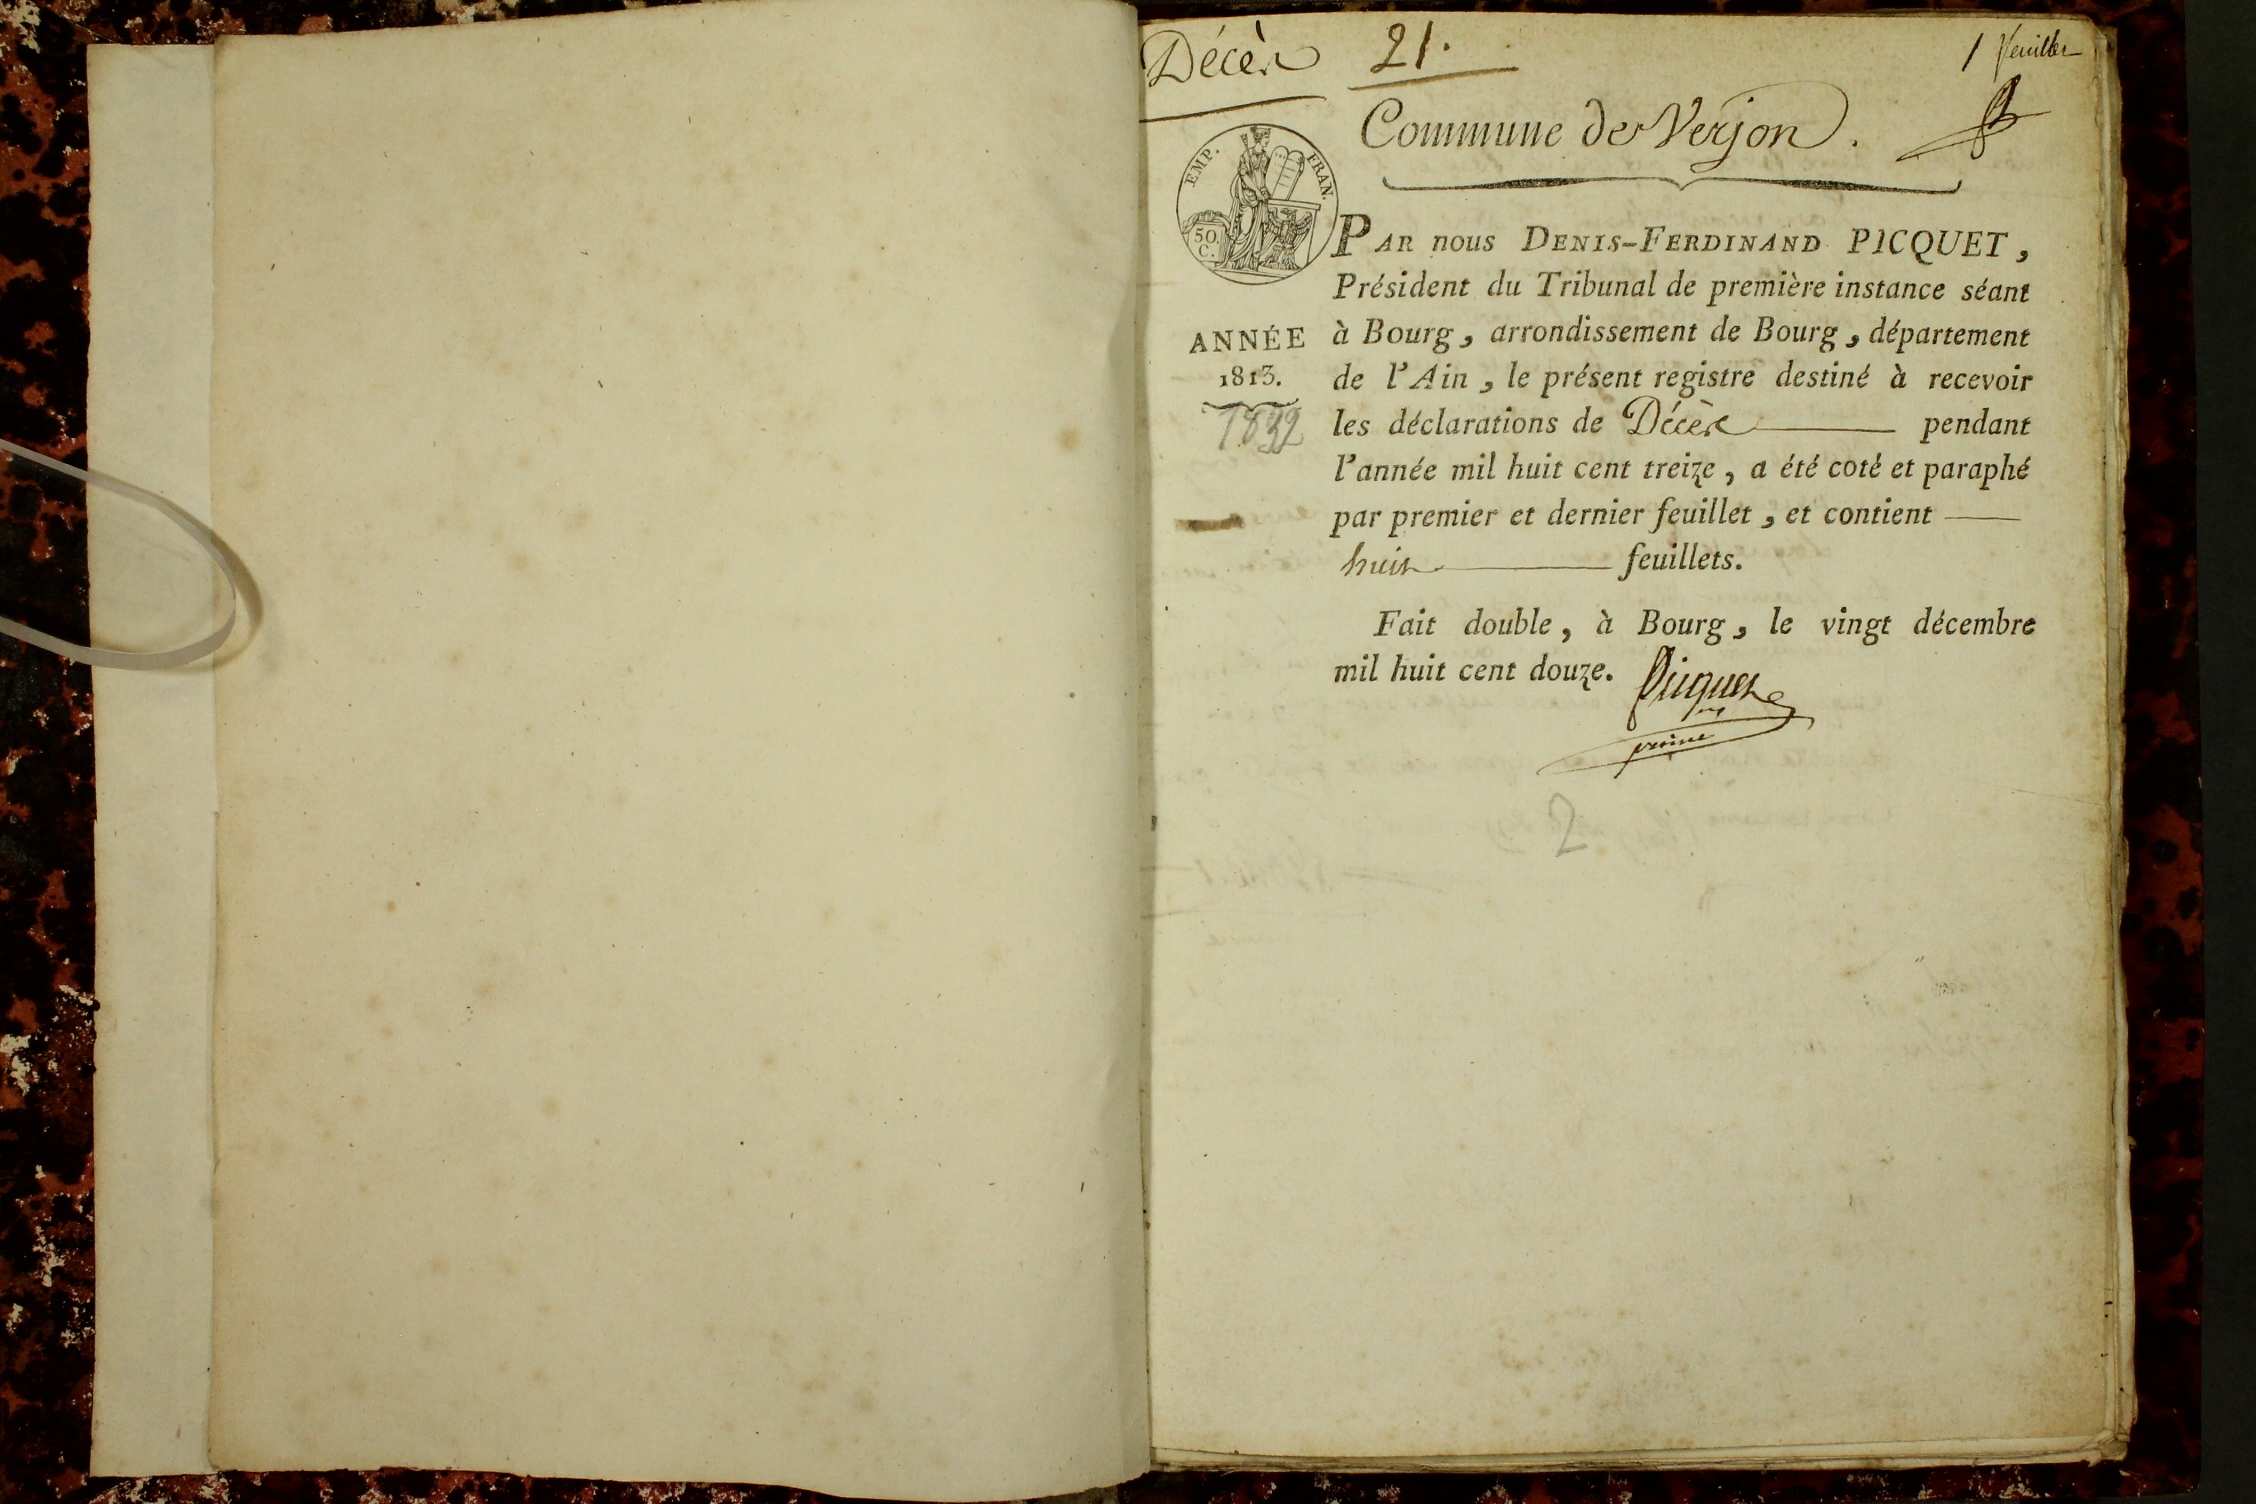 Décès 21. 1 feuillet
Commune de Verjon.
EMP. FRAN.
50.
C.
PAR nous DENIS-FERDINAND PICQUET,
Président du Tribunal de première instance séant
ANNÉE
1813.
1832
à Bourg, arrondissement de Bourg, département
de l'Ain, le présent registre destiné à recevoir
les déclarations de Décès pendant
l'année mil huit cent treize, a été coté et paraphé
par premier et dernier feuillet, et contient
huit feuillets.
Fait double, à Bourg, le vingt décembre
mil huit cent douze. Picquet
2